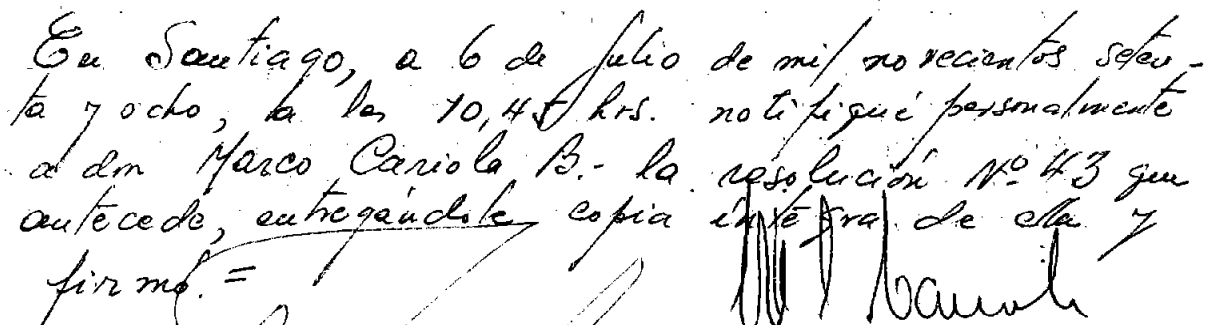 En Santiago, a 6 de Julio de mil novecientos seten-
ta y ocho, a las 10,45 hrs. notifiqué personalmente
a don Marco Cariola B.- la resolución Nº 43 que
antecede, entregándole copia íntegra de ella y
firmó.=